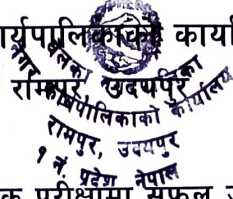 र्यपालिकाको कार्या
रामपुर, उदयपुर
कार्यपालिकाको कार्यालय
रामपुर, उदयपुर
१ नं. प्रदेश नेपाल
क परीक्षामा सफल